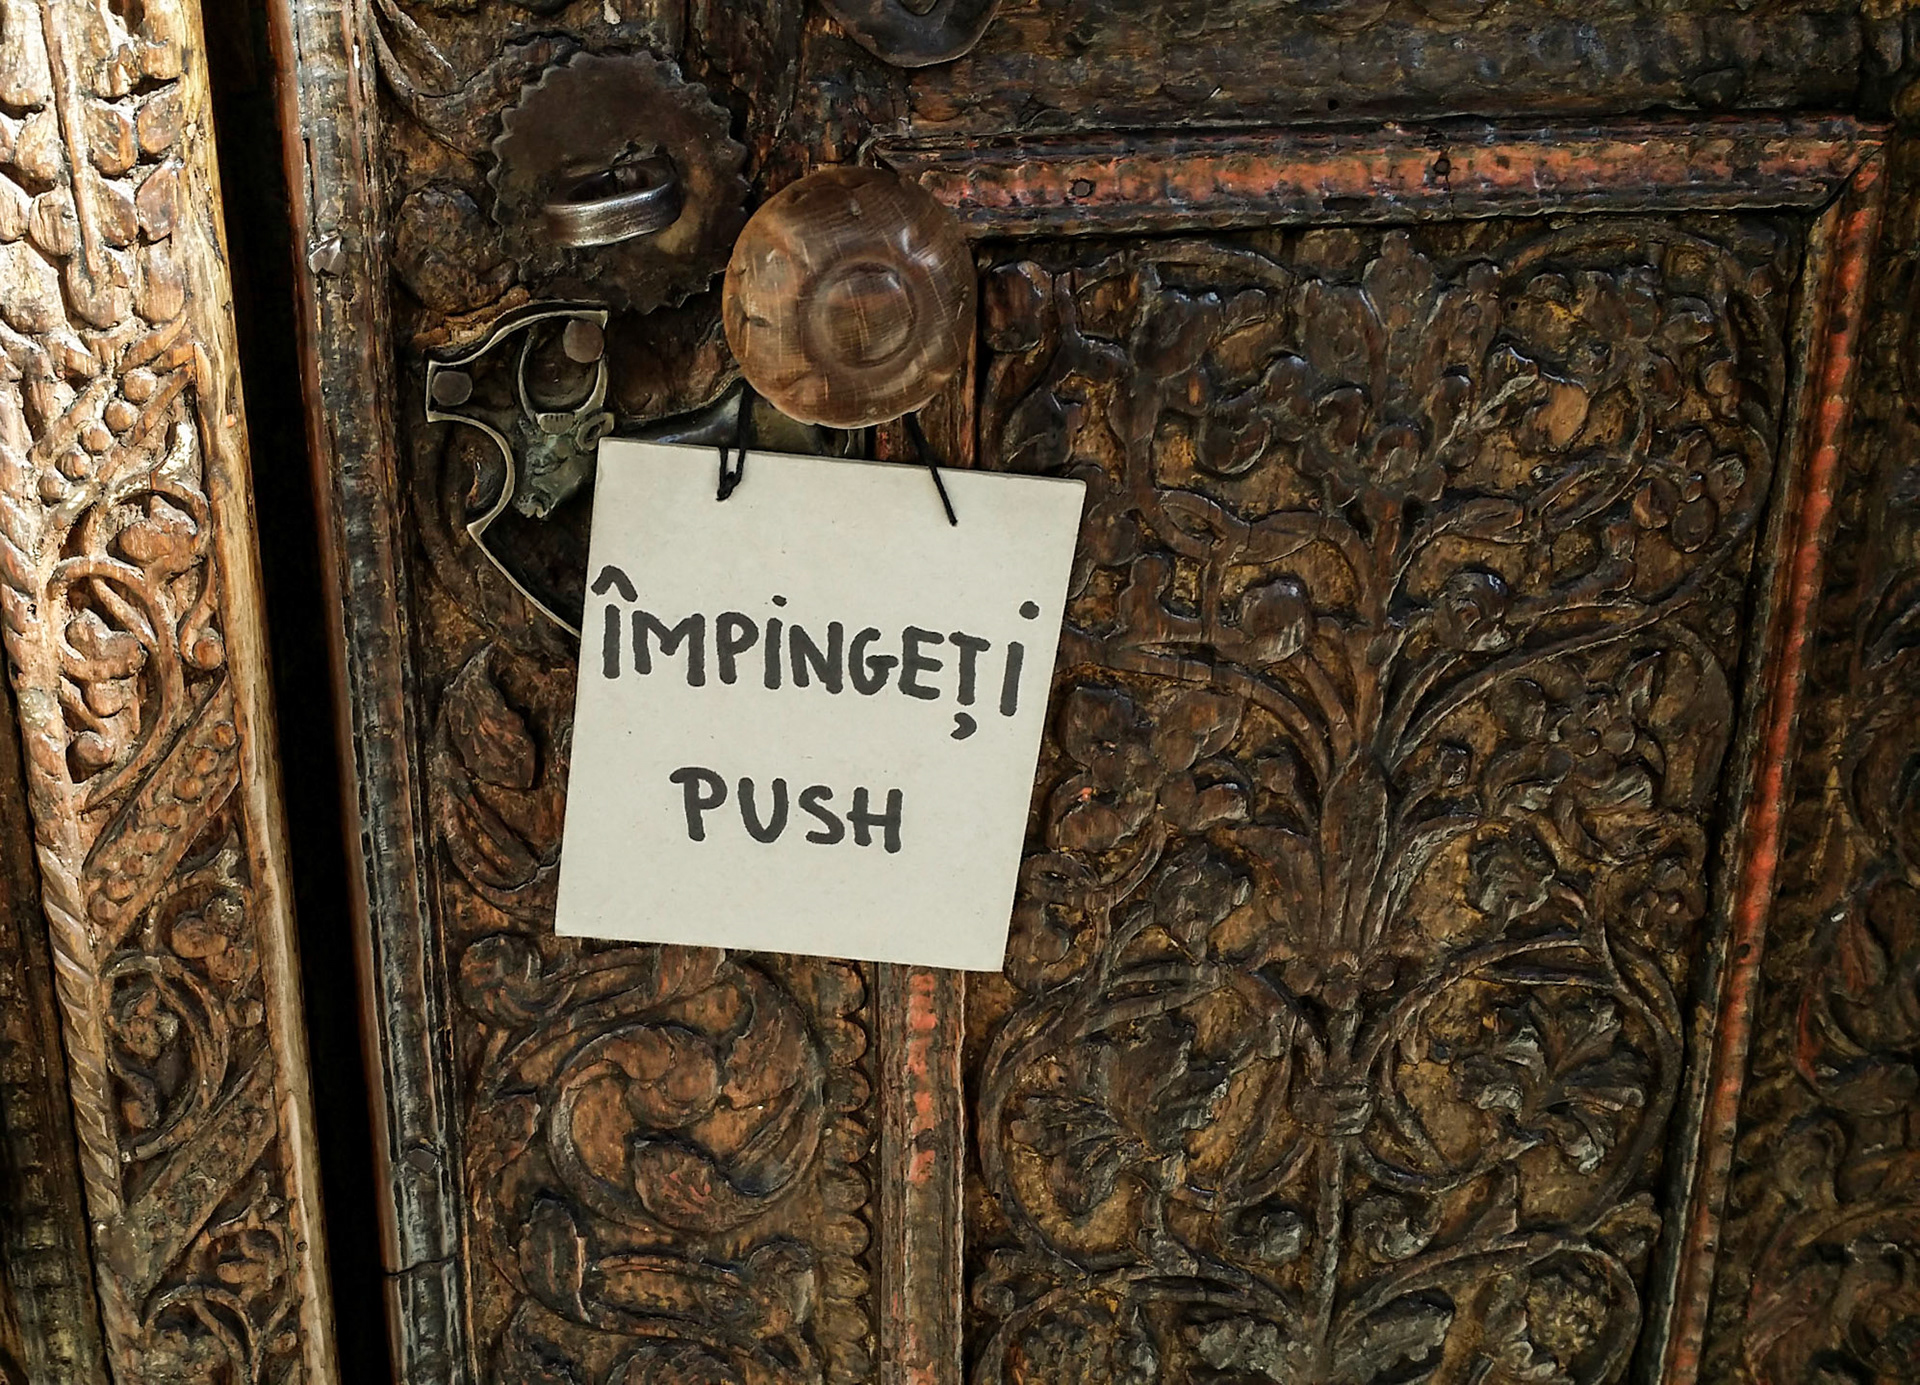 ÎMPINGEȚI
PUSH